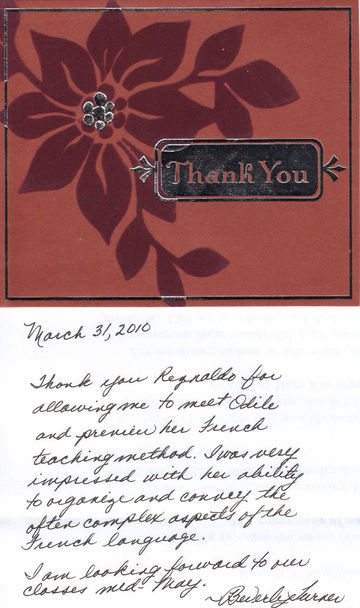 Thank You
March 31, 2010
Thank you Reynaldo for
allowing me to meet Odile
and preview her French
teaching method. I was very
impressed with her ability
to organize and convey the
often complex aspects of the
French language.
I am looking forward to our
classes mid-May.
~Beverly Turner